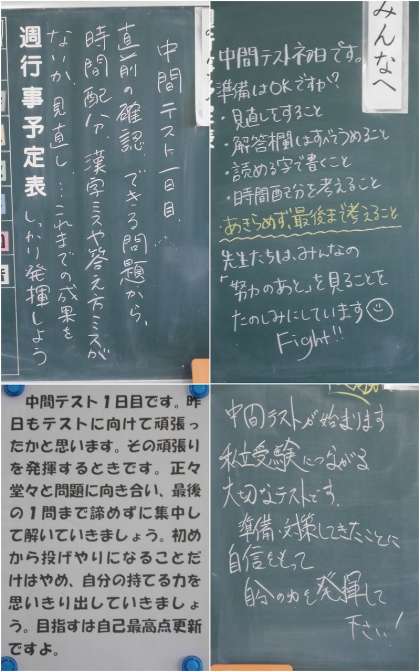 中間テスト一日目…
直前の確認、できる問題から、
時間配分、漢字ミスや答え方ミスが
ないか、見直し…これまでの成果を
しっかり発揮しよう
週行事予定表
みんなへ
中間テスト初日です。
準備はOKですか?
・見直しをすること
・解答欄はすべてうめること
・読める字で書くこと
・時間配分を考えること
・あきらめず、最後まで考えること
先生たちは、みんなの
「努力のあと」を見ることを
たのしみにしています
Fight!!
中間テスト1日目です。昨
日もテストに向けて頑張っ
たかと思います。その頑張り
を発揮するときです。正々
堂々と問題に向き合い、最後
の1問まで諦めずに集中し
て解いていきましょう。初め
から投げやりになることだ
けはやめ、自分の持てる力を
思いきり出していきましょ
う。目指すは自己最高点更新
ですよ。
中間テストが始まります
私立受験につながる
大切なテストです。
準備・対策してきたことに
自信をもって
自分の力を発揮して
下さい!